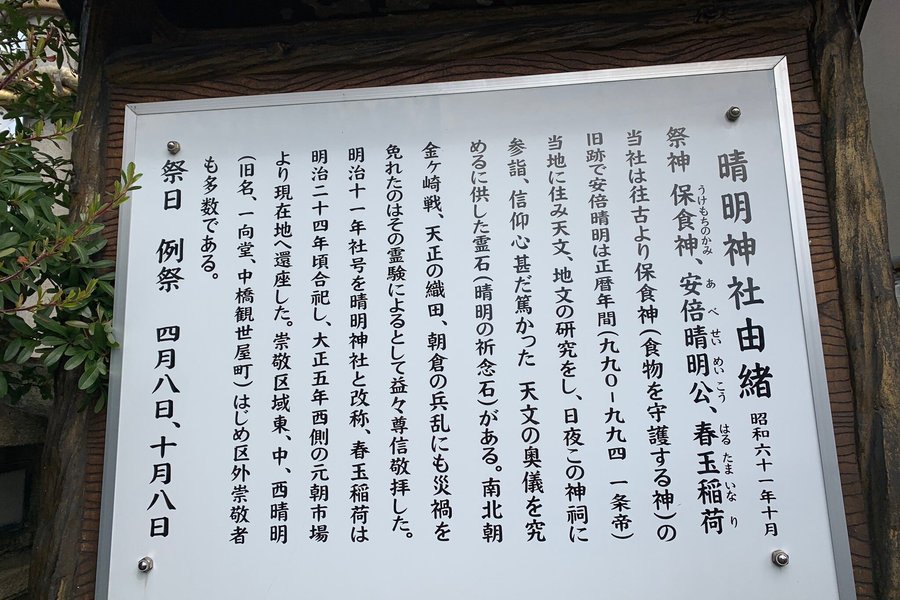 晴明神社由緒 昭和六十一年十月
祭神 保食神、安倍晴明公、春玉稲荷
うけもちのかみ あべせいめいこう はるたまいなり
当社は往古より保食神(食物を守護する神)の
旧跡で安倍晴明は正暦年間(九九〇ー九九四 一条帝)
当地に住み天文、地文の研究をし、日夜この神祠に
参詣、信仰心甚だ篤かった 天文の奥儀を究
めるに供した霊石(晴明の祈念石)がある。南北朝
金ヶ崎戦、天正の織田、朝倉の兵乱にも災禍を
免れたのはその霊験によるとして益々尊信敬拝した。
明治十一年社号を晴明神社と改称、春玉稲荷は
明治二十四年頃合祀し、大正五年西側の元朝市場
より現在地へ還座した。崇敬区域東、中、西晴明
(旧名、一向堂、中橋観世屋町)はじめ区外崇敬者
も多数である。
祭日 例祭 四月八日、十月八日